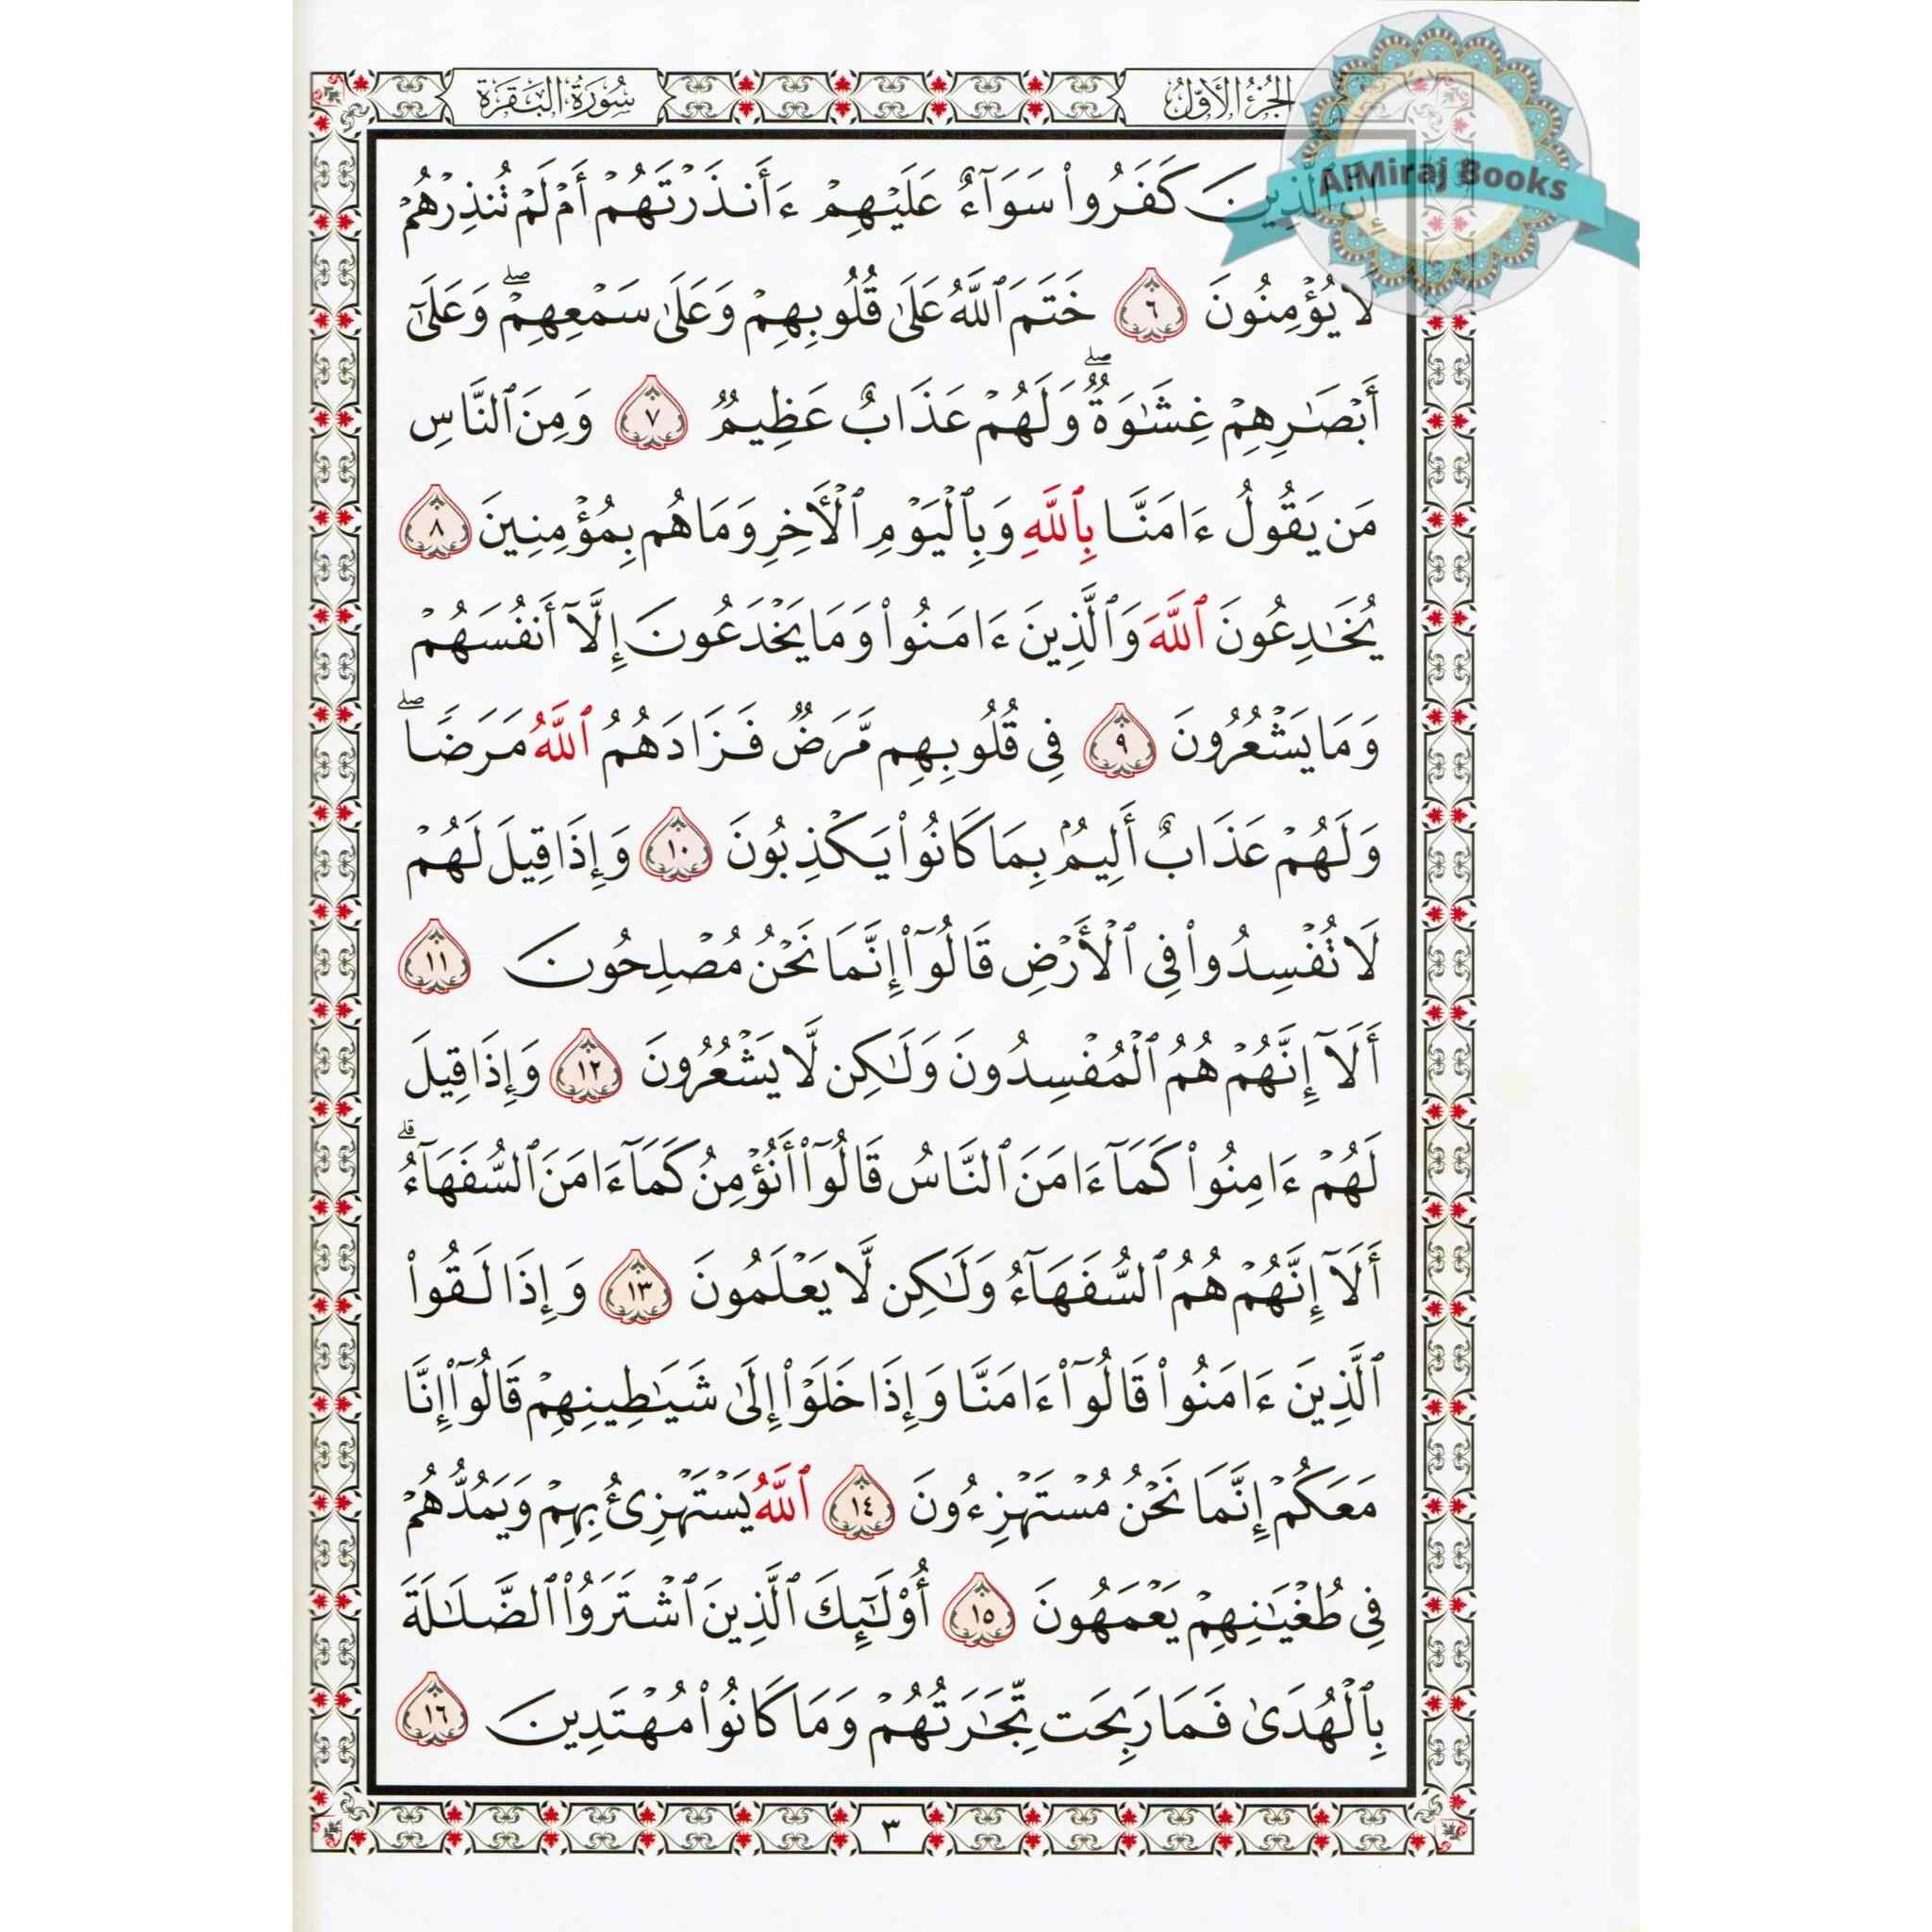 الجُزْءُ الأَوَّلُ
سُورَةُ البَقَرَةِ
AlMiraj Books
إِنَّ ٱلَّذِينَ كَفَرُوا۟ سَوَآءٌ عَلَيْهِمْ ءَأَنذَرْتَهُمْ أَمْ لَمْ تُنذِرْهُمْ
لَا يُؤْمِنُونَ ٦ خَتَمَ ٱللَّهُ عَلَىٰ قُلُوبِهِمْ وَعَلَىٰ سَمْعِهِمْ ۖ وَعَلَىٰٓ
أَبْصَـٰرِهِمْ غِشَـٰوَةٌ ۖ وَلَهُمْ عَذَابٌ عَظِيمٌ ٧ وَمِنَ ٱلنَّاسِ
مَن يَقُولُ ءَامَنَّا بِٱللَّهِ وَبِٱلْيَوْمِ ٱلْـَٔاخِرِ وَمَا هُم بِمُؤْمِنِينَ ٨
يُخَـٰدِعُونَ ٱللَّهَ وَٱلَّذِينَ ءَامَنُوا۟ وَمَا يَخْدَعُونَ إِلَّآ أَنفُسَهُمْ
وَمَا يَشْعُرُونَ ٩ فِى قُلُوبِهِم مَّرَضٌ فَزَادَهُمُ ٱللَّهُ مَرَضًا ۖ
وَلَهُمْ عَذَابٌ أَلِيمٌۢ بِمَا كَانُوا۟ يَكْذِبُونَ ١٠ وَإِذَا قِيلَ لَهُمْ
لَا تُفْسِدُوا۟ فِى ٱلْأَرْضِ قَالُوٓا۟ إِنَّمَا نَحْنُ مُصْلِحُونَ ١١
أَلَآ إِنَّهُمْ هُمُ ٱلْمُفْسِدُونَ وَلَـٰكِن لَّا يَشْعُرُونَ ١٢ وَإِذَا قِيلَ
لَهُمْ ءَامِنُوا۟ كَمَآ ءَامَنَ ٱلنَّاسُ قَالُوٓا۟ أَنُؤْمِنُ كَمَآ ءَامَنَ ٱلسُّفَهَآءُ ۗ
أَلَآ إِنَّهُمْ هُمُ ٱلسُّفَهَآءُ وَلَـٰكِن لَّا يَعْلَمُونَ ١٣ وَإِذَا لَقُوا۟
ٱلَّذِينَ ءَامَنُوا۟ قَالُوٓا۟ ءَامَنَّا وَإِذَا خَلَوْا۟ إِلَىٰ شَيَـٰطِينِهِمْ قَالُوٓا۟ إِنَّا
مَعَكُمْ إِنَّمَا نَحْنُ مُسْتَهْزِءُونَ ١٤ ٱللَّهُ يَسْتَهْزِئُ بِهِمْ وَيَمُدُّهُمْ
فِى طُغْيَـٰنِهِمْ يَعْمَهُونَ ١٥ أُو۟لَـٰٓئِكَ ٱلَّذِينَ ٱشْتَرَوُا۟ ٱلضَّلَـٰلَةَ
بِٱلْهُدَىٰ فَمَا رَبِحَت تِّجَـٰرَتُهُمْ وَمَا كَانُوا۟ مُهْتَدِينَ ١٦
٣